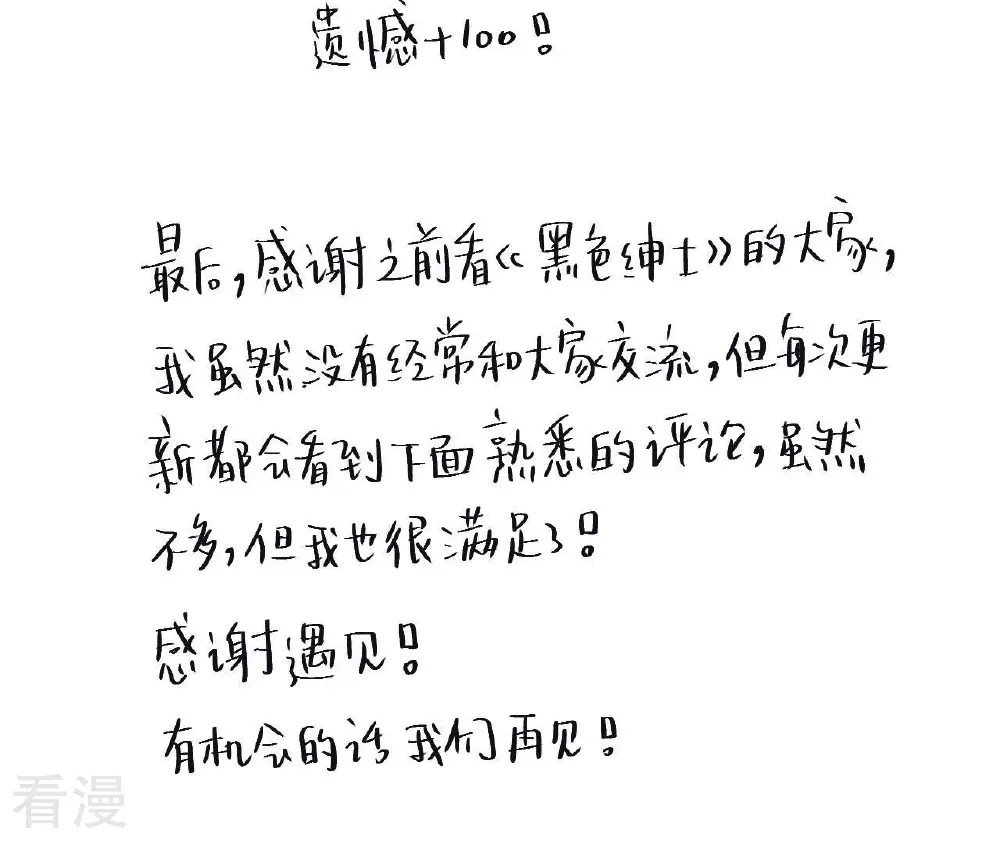 遗憾+100！
最后,感谢之前看《黑色绅士》的大家,
我虽然没有经常和大家交流,但每次更
新都会看到下面熟悉的评论,虽然
不多,但我也很满足了！
感谢遇见！
有机会的话我们再见！
看漫